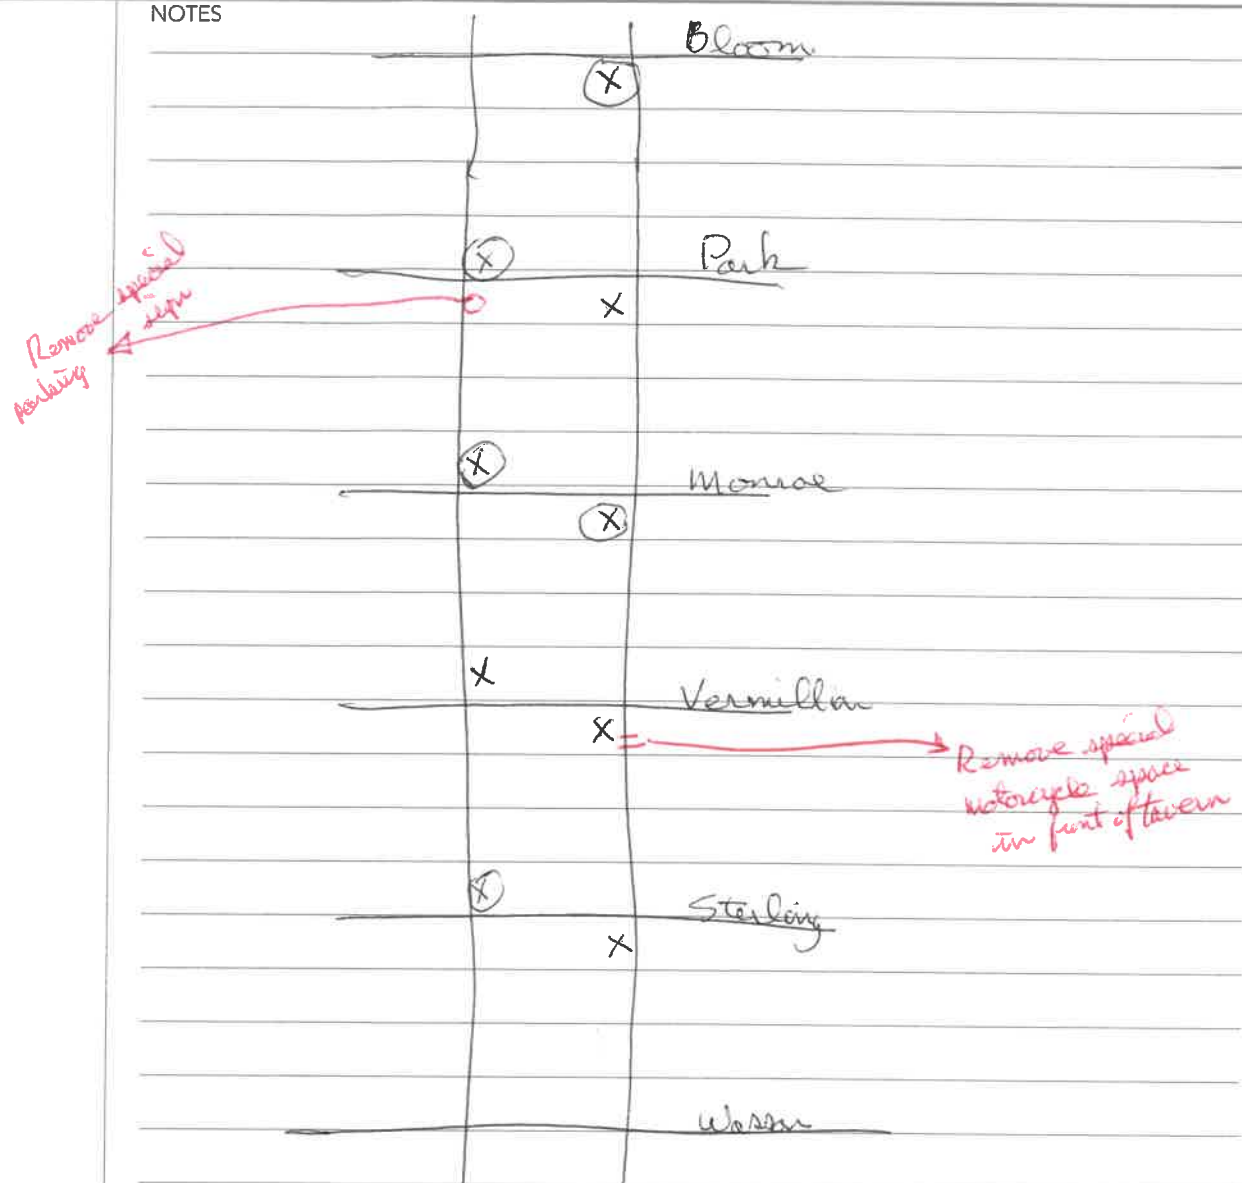 NOTES
Bloom
X
X
Park
Remove special
parking sign
X
X
Monroe
X
X
Vermillion
X
Remove special
motorcycle space
in front of tavern
X
Sterling
X